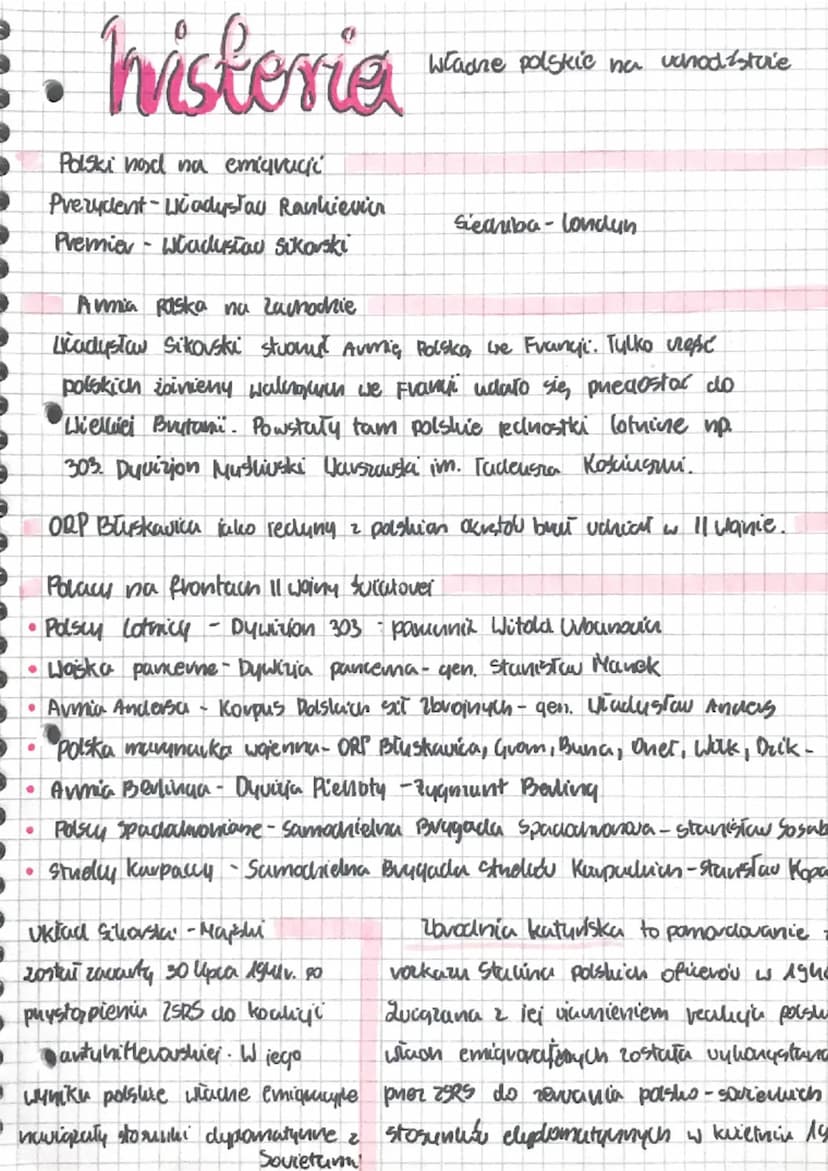 historia
Władze polskie na uchodźstwie
Polski rząd na emigracji
Prezydent - Władysław Raczkiewicz
Siedziba - Londyn
Premier - Władysław Sikorski
Armia Polska na Zachodzie
Władysław Sikorski stworzył Armię Polską we Francji. Tylko część
polskich żołnierzy walczących we Francji udało się, przedostać do
Wielkiej Brytanii. Powstały tam polskie jednostki lotnicze np.
303. Dywizjon Myśliwski Warszawski im. Tadeusza Kościuszki.
ORP Błyskawica jako jedyny z polskich okrętów brał udział w II wojnie.
Polacy na frontach II wojny światowej
• Polscy lotnicy - Dywizion 303 - porucznik Witold Urbanowicz
• Wojska pancerne - Dywizja pancerna - gen. Stanisław Maczek
• Armia Andersa - Korpus Polskich sił Zbrojnych - gen. Władysław Anders
• Polska marynarka wojenna - ORP Błyskawica, Grom, Burza, Orzeł, Wilk, Dzik -
• Armia Berlinga - Dywizja Piechoty - Zygmunt Berling
• Polscy spadochroniarze - Samodzielna Brygada Spadochronowa - Stanisław Sosab
• Strzelcy Karpaccy - Samodzielna Brygada Strzelców Karpackich - Stanisław Kopa
Układ Sikorski - Majski
został zawarty 30 lipca 1941r. po
przystąpieniu ZSRS do koalicji
antyhitlerowskiej. W jego
wyniku polskie władze emigracyjne
nawiązały stosunki dyplomatyczne z
Sowietami
Zbrodnia katyńska to pomordowanie z
rozkazu Stalina polskich oficerów w 1940
Związana z jej ujawnieniem reakcja polski
władz emigracyjnych została wykorzystana
przez ZSRS do zerwania polsko - sowieckich
stosunków dyplomatycznych w kwietniu 19